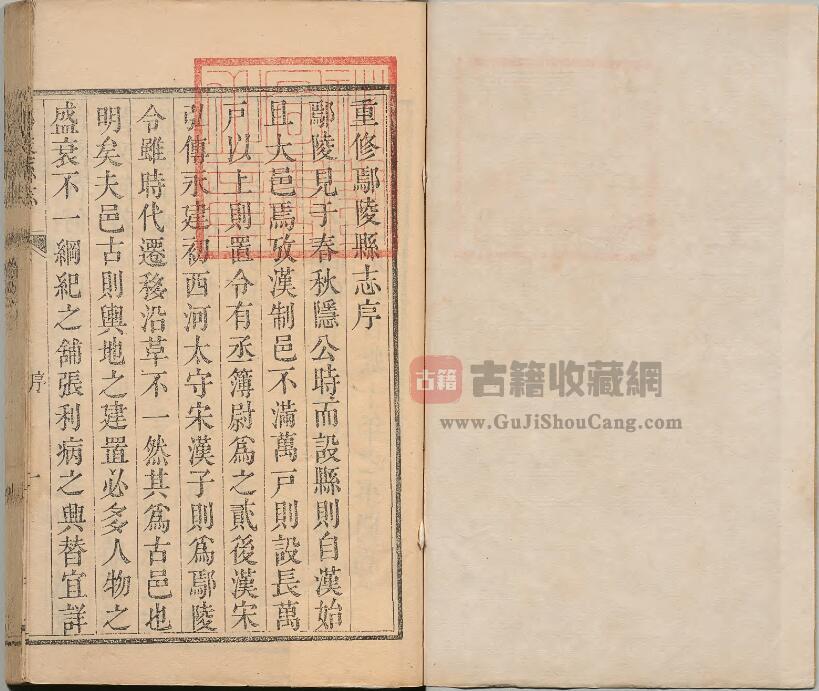 重修鄢陵縣志序
鄢陵見于春秋隱公時而設縣則自漢始
且大邑焉攷漢制邑不滿萬戸則設長萬
戸以上則置令有丞簿尉爲之貳後漢宋
弘傳永建初西河太守宋漢子則爲鄢陵
令雖時代遷移沿革不一然其爲古邑也
明矣夫邑古則輿地之建置必多人物之
盛衰不一綱紀之舖張利病之興替宜詳
序
一
古籍
古籍收藏網
www.GuJiShouCang.com